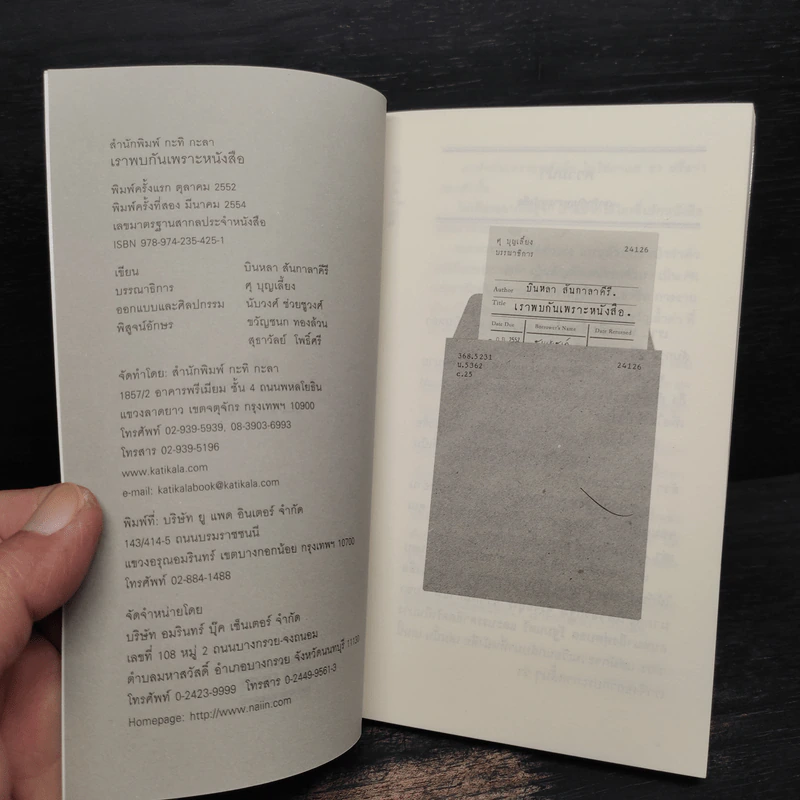 สำนักพิมพ์ กะทิ กะลา
เราพบกันเพราะหนังสือ
พิมพ์ครั้งแรก ตุลาคม 2552
พิมพ์ครั้งที่สอง มีนาคม 2554
เลขมาตรฐานสากลประจำหนังสือ
ISBN 978-974-235-425-1
เขียน บินหลา สันกาลาคีรี
บรรณาธิการ ศุ บุญเลี้ยง
ออกแบบและศิลปกรรม นับวงศ์ ช่วยชูวงศ์
พิสูจน์อักษร ขวัญชนก ทองล้วน
สุธาวัลย์ โพธิ์ศรี
จัดทำโดย: สำนักพิมพ์ กะทิ กะลา
1857/2 อาคารพรีเมียม ชั้น 4 ถนนพหลโยธิน
แขวงลาดยาว เขตจตุจักร กรุงเทพฯ 10900
โทรศัพท์ 02-939-5939, 08-3903-6993
โทรสาร 02-939-5196
www.katikala.com
e-mail: katikalabook@katikala.com
พิมพ์ที่: บริษัท ยู แพด อินเตอร์ จำกัด
143/414-5 ถนนบรมราชชนนี
แขวงอรุณอมรินทร์ เขตบางกอกน้อย กรุงเทพฯ 10700
โทรศัพท์ 02-884-1488
จัดจำหน่ายโดย
บริษัท อมรินทร์ บุ๊ค เซ็นเตอร์ จำกัด
เลขที่ 108 หมู่ 2 ถนนบางกรวย-จงถนอม
ตำบลมหาสวัสดิ์ อำเภอบางกรวย จังหวัดนนทบุรี 11130
โทรศัพท์ 0-2423-9999 โทรสาร 0-2449-9561-3
Homepage: http://www.naiin.com
ศุ บุญเลี้ยง 24126
บรรณาธิการ
Author บินหลา สันกาลาคีรี.
Title เราพบกันเพราะหนังสือ.
Date Due Borrower's Name Date Returned
368.5231 24126
บ.5362
c.25